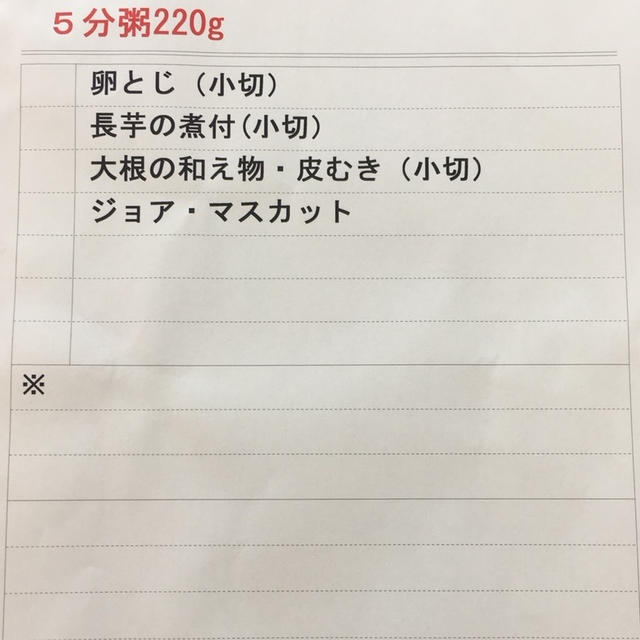 ５分粥220g
卵とじ（小切）
長芋の煮付(小切）
大根の和え物・皮むき（小切）
ジョア・マスカット
※